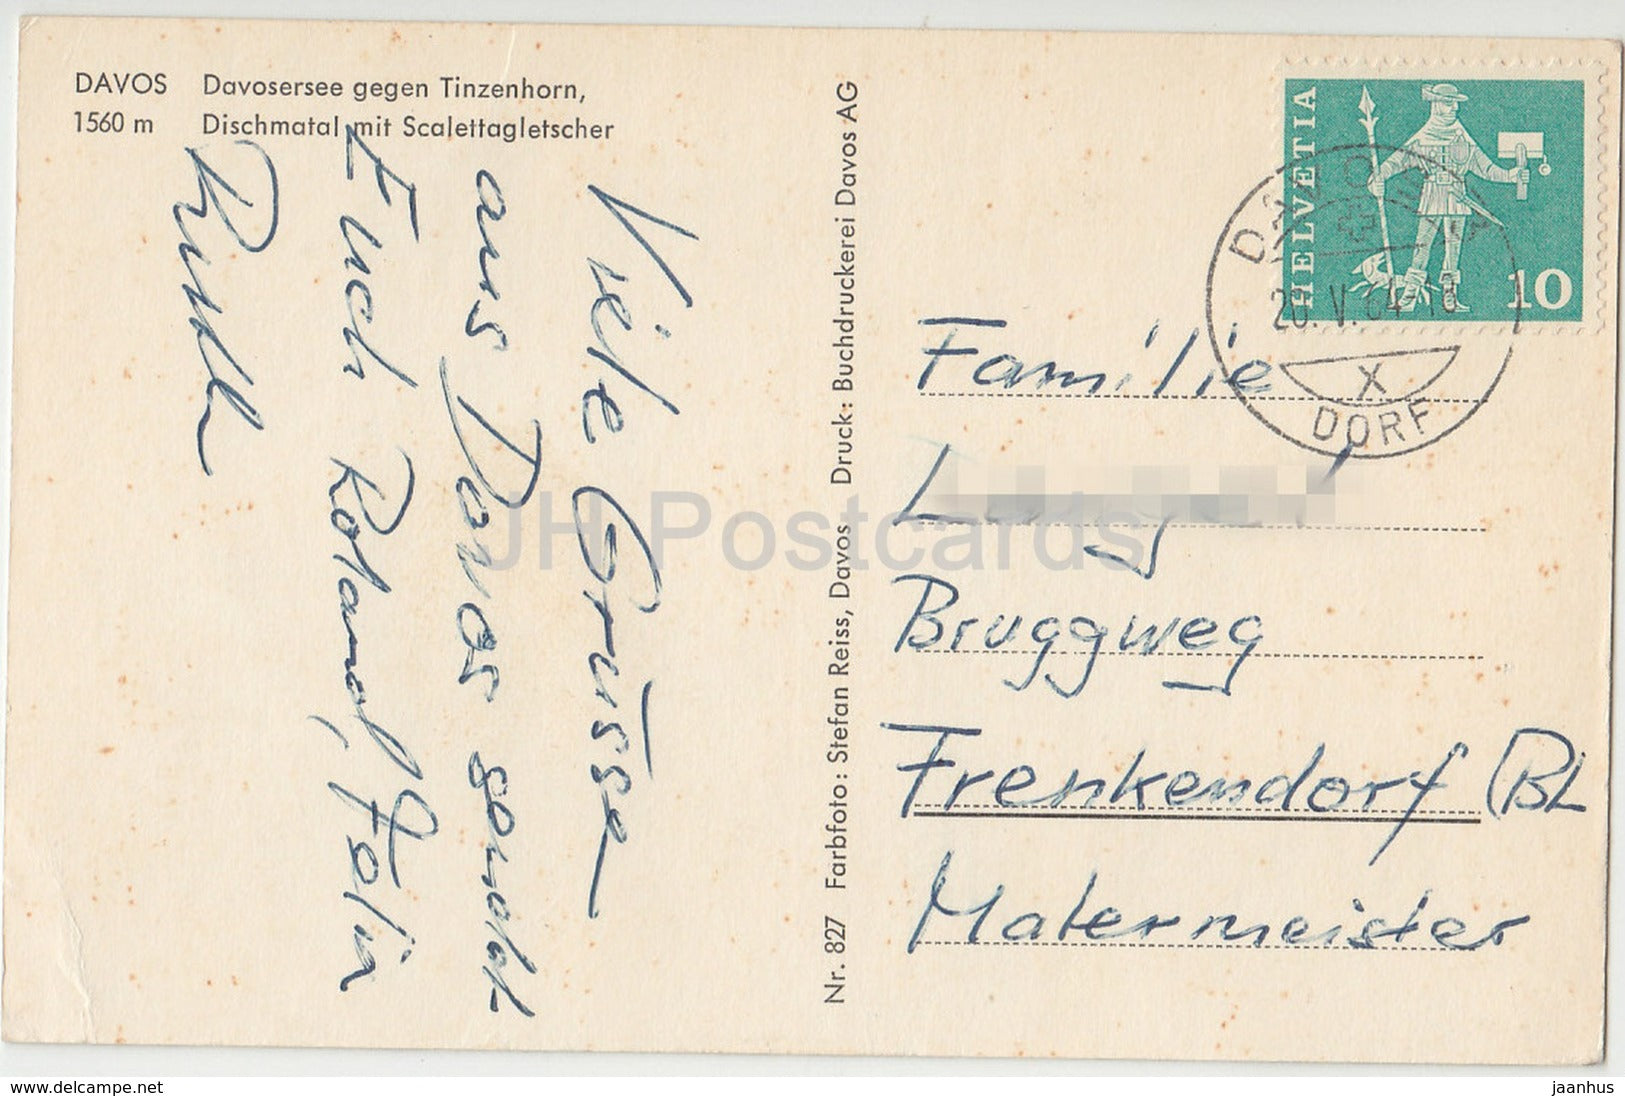 DAVOS Davosersee gegen Tinzenhorn,
1560 m Dischmatal mit Scalettagletscher
Viele Grüsse
aus Davos sendt
Euch Roland, Felix
Ruth
Nr. 827 Farbfoto: Stefan Reiss, Davos Druck: Buchdruckerei Davos AG
HELVETIA
10
DAVOS
V. 64
X
DORF
Familie
Bruggweg
Frenkendorf (BL
Malermeister
JH Postcards
www.delcampe.net
jaanhus